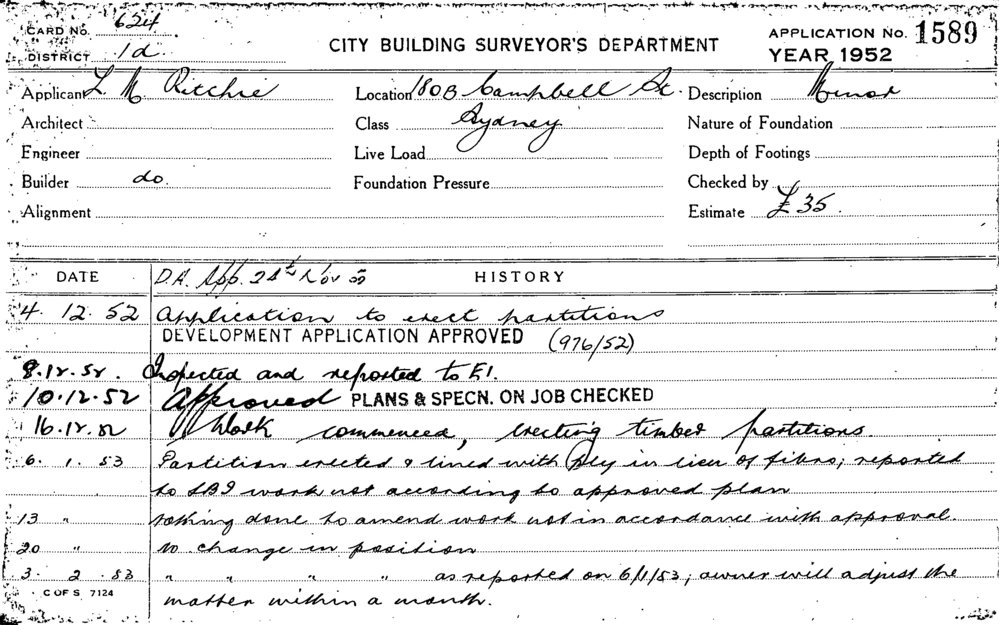 CARD No. 624
DISTRICT 1a
CITY BUILDING SURVEYOR'S DEPARTMENT
APPLICATION No. 1589
YEAR 1952
Applicant L. M. Ritchie
Location 180B Campbell St.
Description Minor
Architect
Class Sydney
Nature of Foundation
Engineer
Live Load
Depth of Footings
Builder do.
Foundation Pressure
Checked by
Alignment
Estimate £35.
DATE D.A. App. Nov HISTORY
4. 12. 52 Application to erect partitions
DEVELOPMENT APPLICATION APPROVED (976/52)
8.12.52. Inspected and reported to
10.12.52 Approved PLANS & SPECN. ON JOB CHECKED
16.12.52 Work commenced, erecting timber partitions.
6. 1. 53 Partition erected & lined with ply in lieu of fibro; reported
to SBI work not according to approved plan
13 " nothing done to amend work not in accordance with approval.
20 " no change in position
3. 2. 53 " " " " as reported on 6/1/53; owner will adjust the
C OF S 7124
matter within a month.